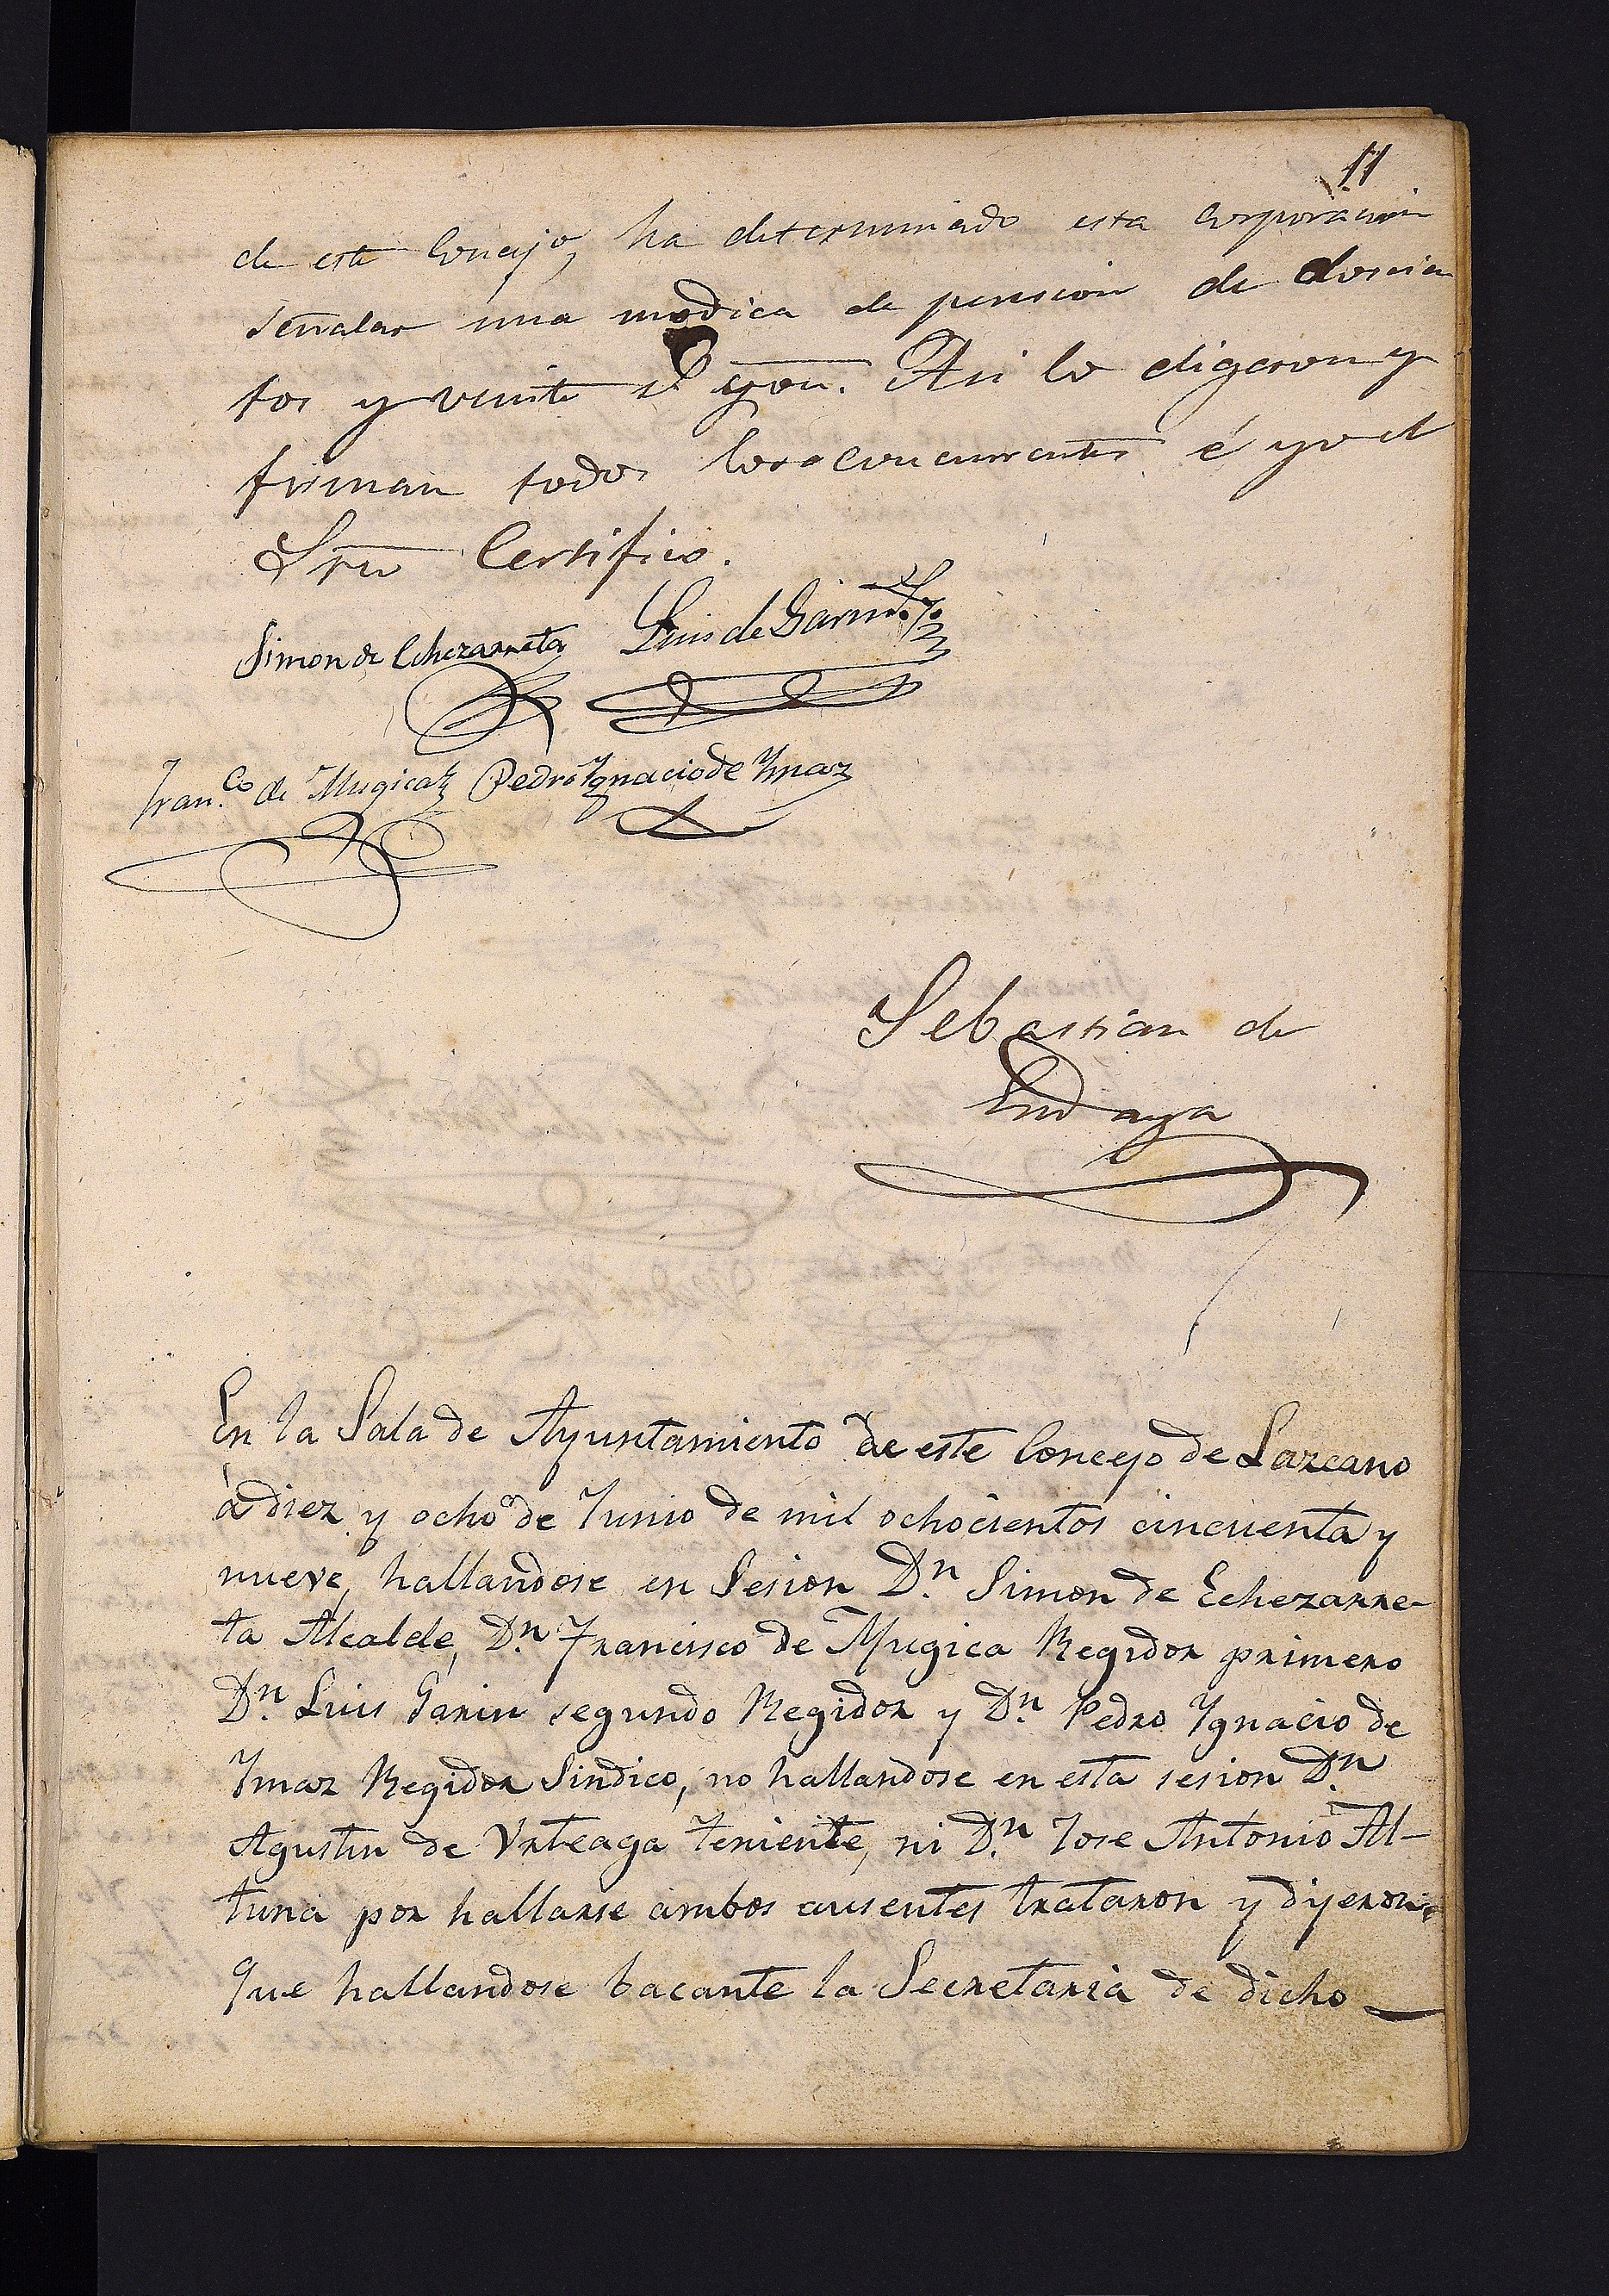 11
de este Concejo, ha determinado esta corporacion
señalar una modica de pension de doscien
tos y veinte rs von. Asi lo digeron y
firman todos los concurrentes é yo el
Srio Certifico.
Simon de Echezarreta Luis de Garin
Fran.co de Mugica Pedro Ygnacio de Ymaz
Sebastian de
Endaya
En la Sala de Ayuntamiento de este Concejo de Lazcano
á diez y ocho de Junio de mil ochocientos cincuenta y
nueve, hallandose en Sesion Dn. Simon de Echezarre-
ta Alcalde, Dn. Francisco de Mugica Regidor primero
Dn. Luis Garin segundo Regidor y Dn. Pedro Ygnacio de
Ymaz Regidor Sindico, no hallandose en esta sesion Dn.
Agustin de Urteaga Teniente, ni Dn. Jose Antonio Al-
tuna por hallarse ambos ausentes trataron y dijeron:
Que hallandose bacante la Secretaria de dicho